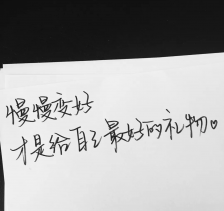 慢慢变好
才是给自己最好的礼物。